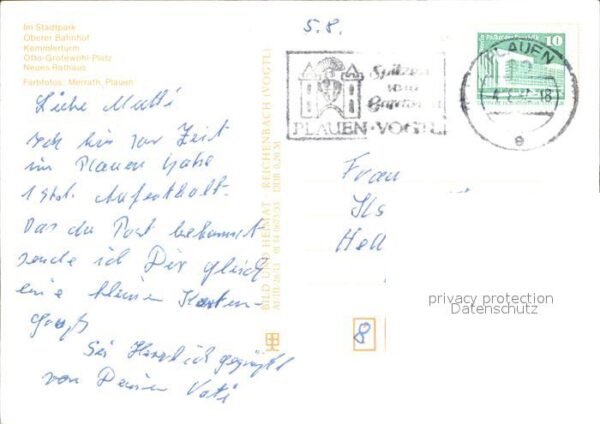 Im Stadtpark
Oberer Bahnhof
Kemmlerturm
Otto-Grotewohl-Platz
Neues Rathaus
Farbfotos: Merrath, Plauen
5.8.
Liebe Mutti
Ich bin zur Zeit
in Plauen habe
1 Std. Aufenthalt.
Das du Post bekommst
sende ich Dir gleich
eine kleinen Karten-
gruß
Sei Herzlich gegrüßt
von Deinem Vati
BILD UND HEIMAT REICHENBACH (VOGTL)
Spitzen
und
Gardinen
PLAUEN · VOGTL
PLAUEN
10
Frau
Ils
Hell
privacy protection
Datenschutz
8